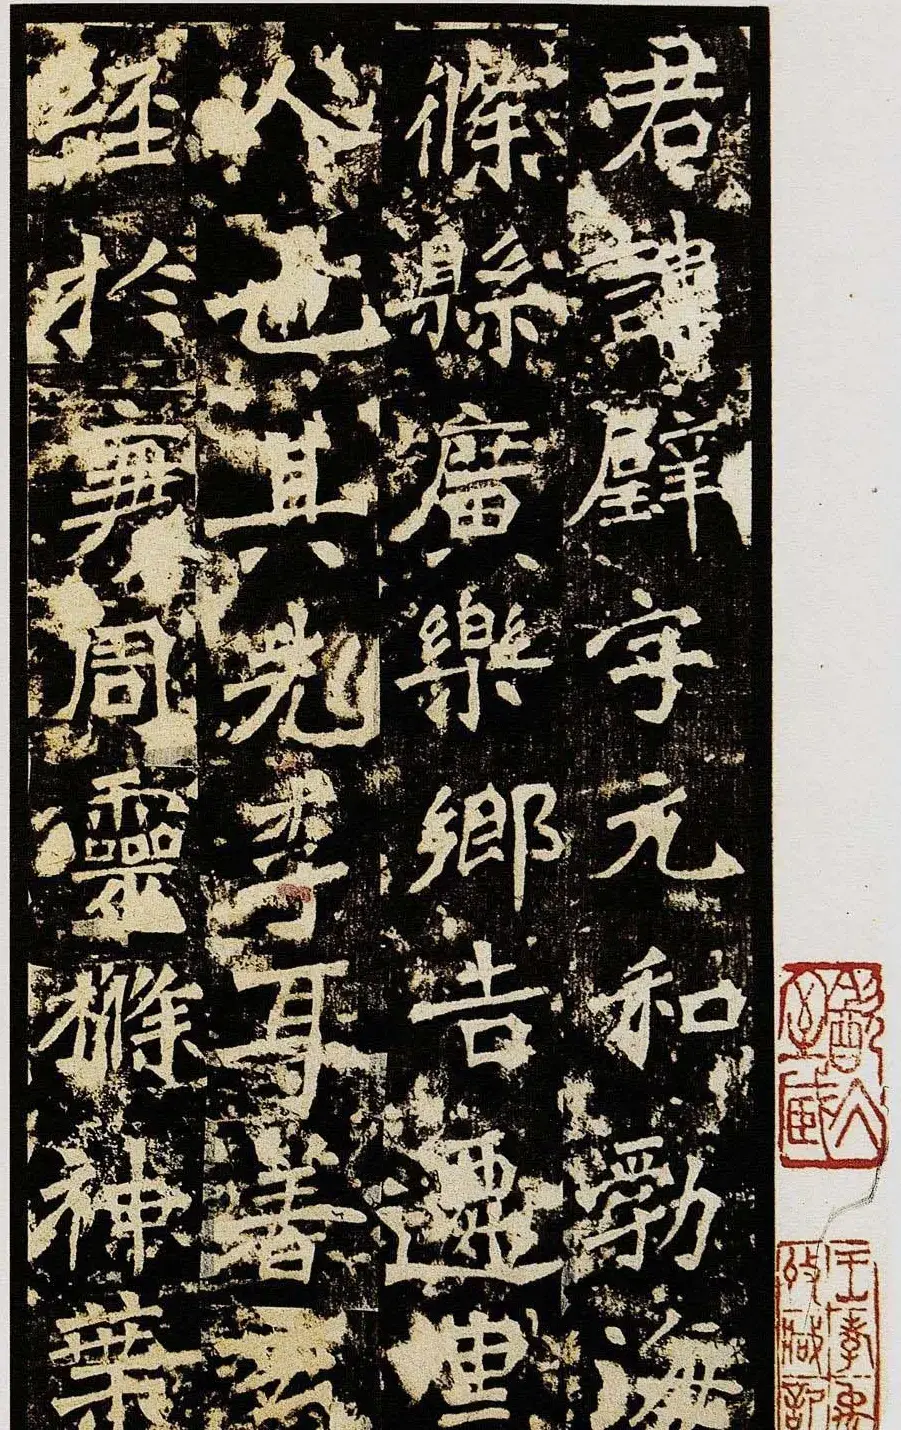 君諱璧字元和勃海
條縣廣樂鄉吉遷里
人也其先李耳著玄
經於衰周靈條神葉